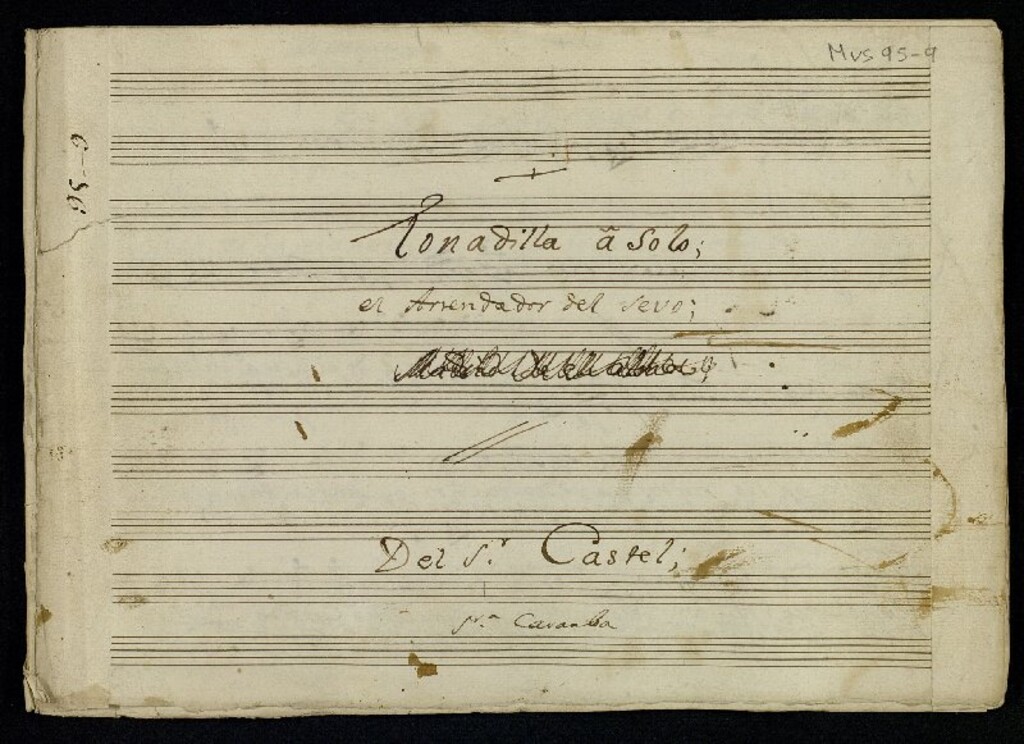 Mus 95-9
95-9
Tonadilla â Solo;
el Arrendador del sevo;
Del Sr. Castel;
Sra. Caramba